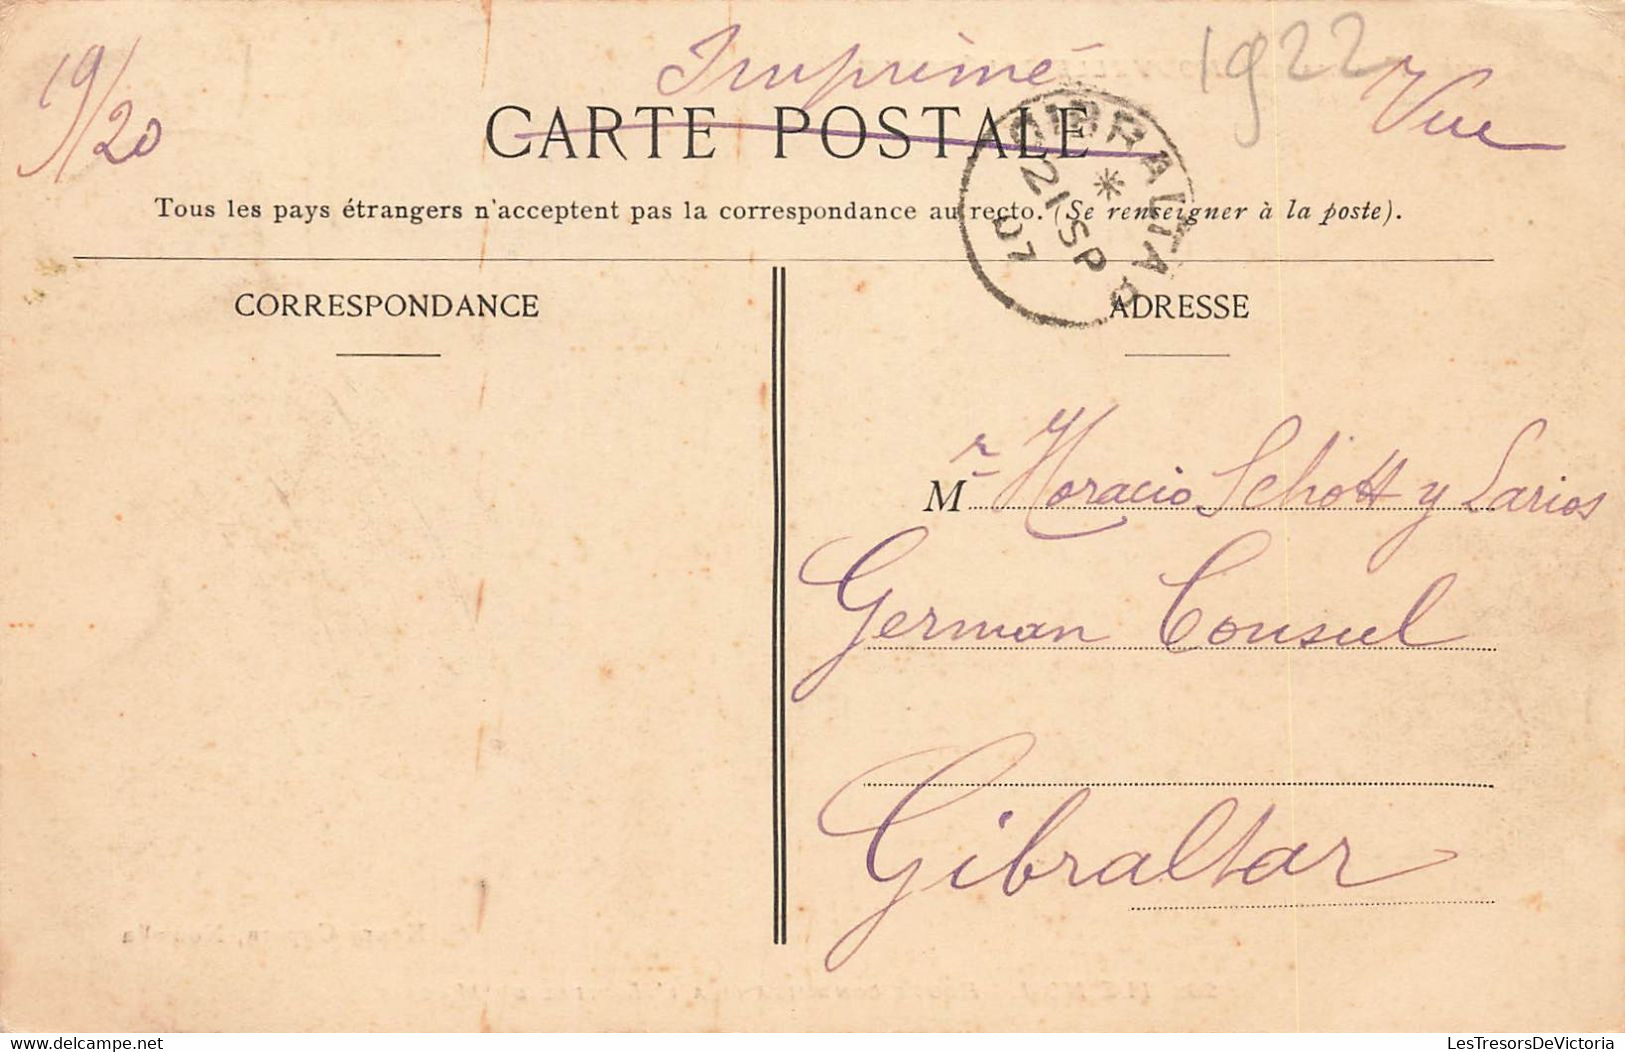 19/20
Imprimé
1922
Vue
CARTE POSTALE
GIBRALTAR
21 SP
07
Tous les pays étrangers n'acceptent pas la correspondance au recto. (Se renseigner à la poste).
CORRESPONDANCE
ADRESSE
Mr Horacio Schott y Larios
German Consul
Gibraltar
delcampe.net
LesTresorsDeVictoria